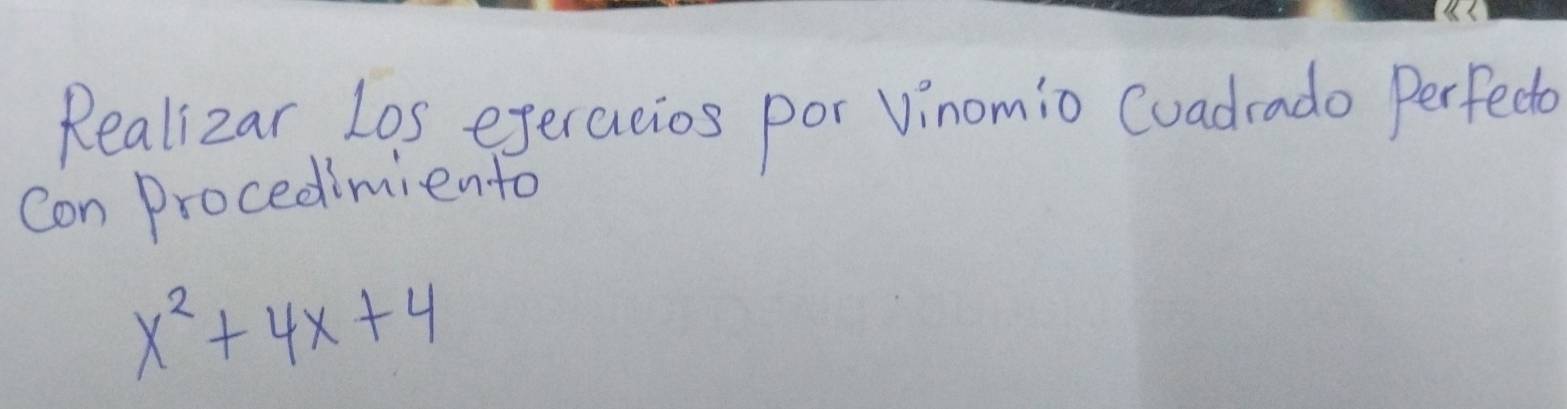 Realizar Los ejercicios por Vinomio Cuadrado Perfecto
Con Procedimiento
x² + 4x + 4